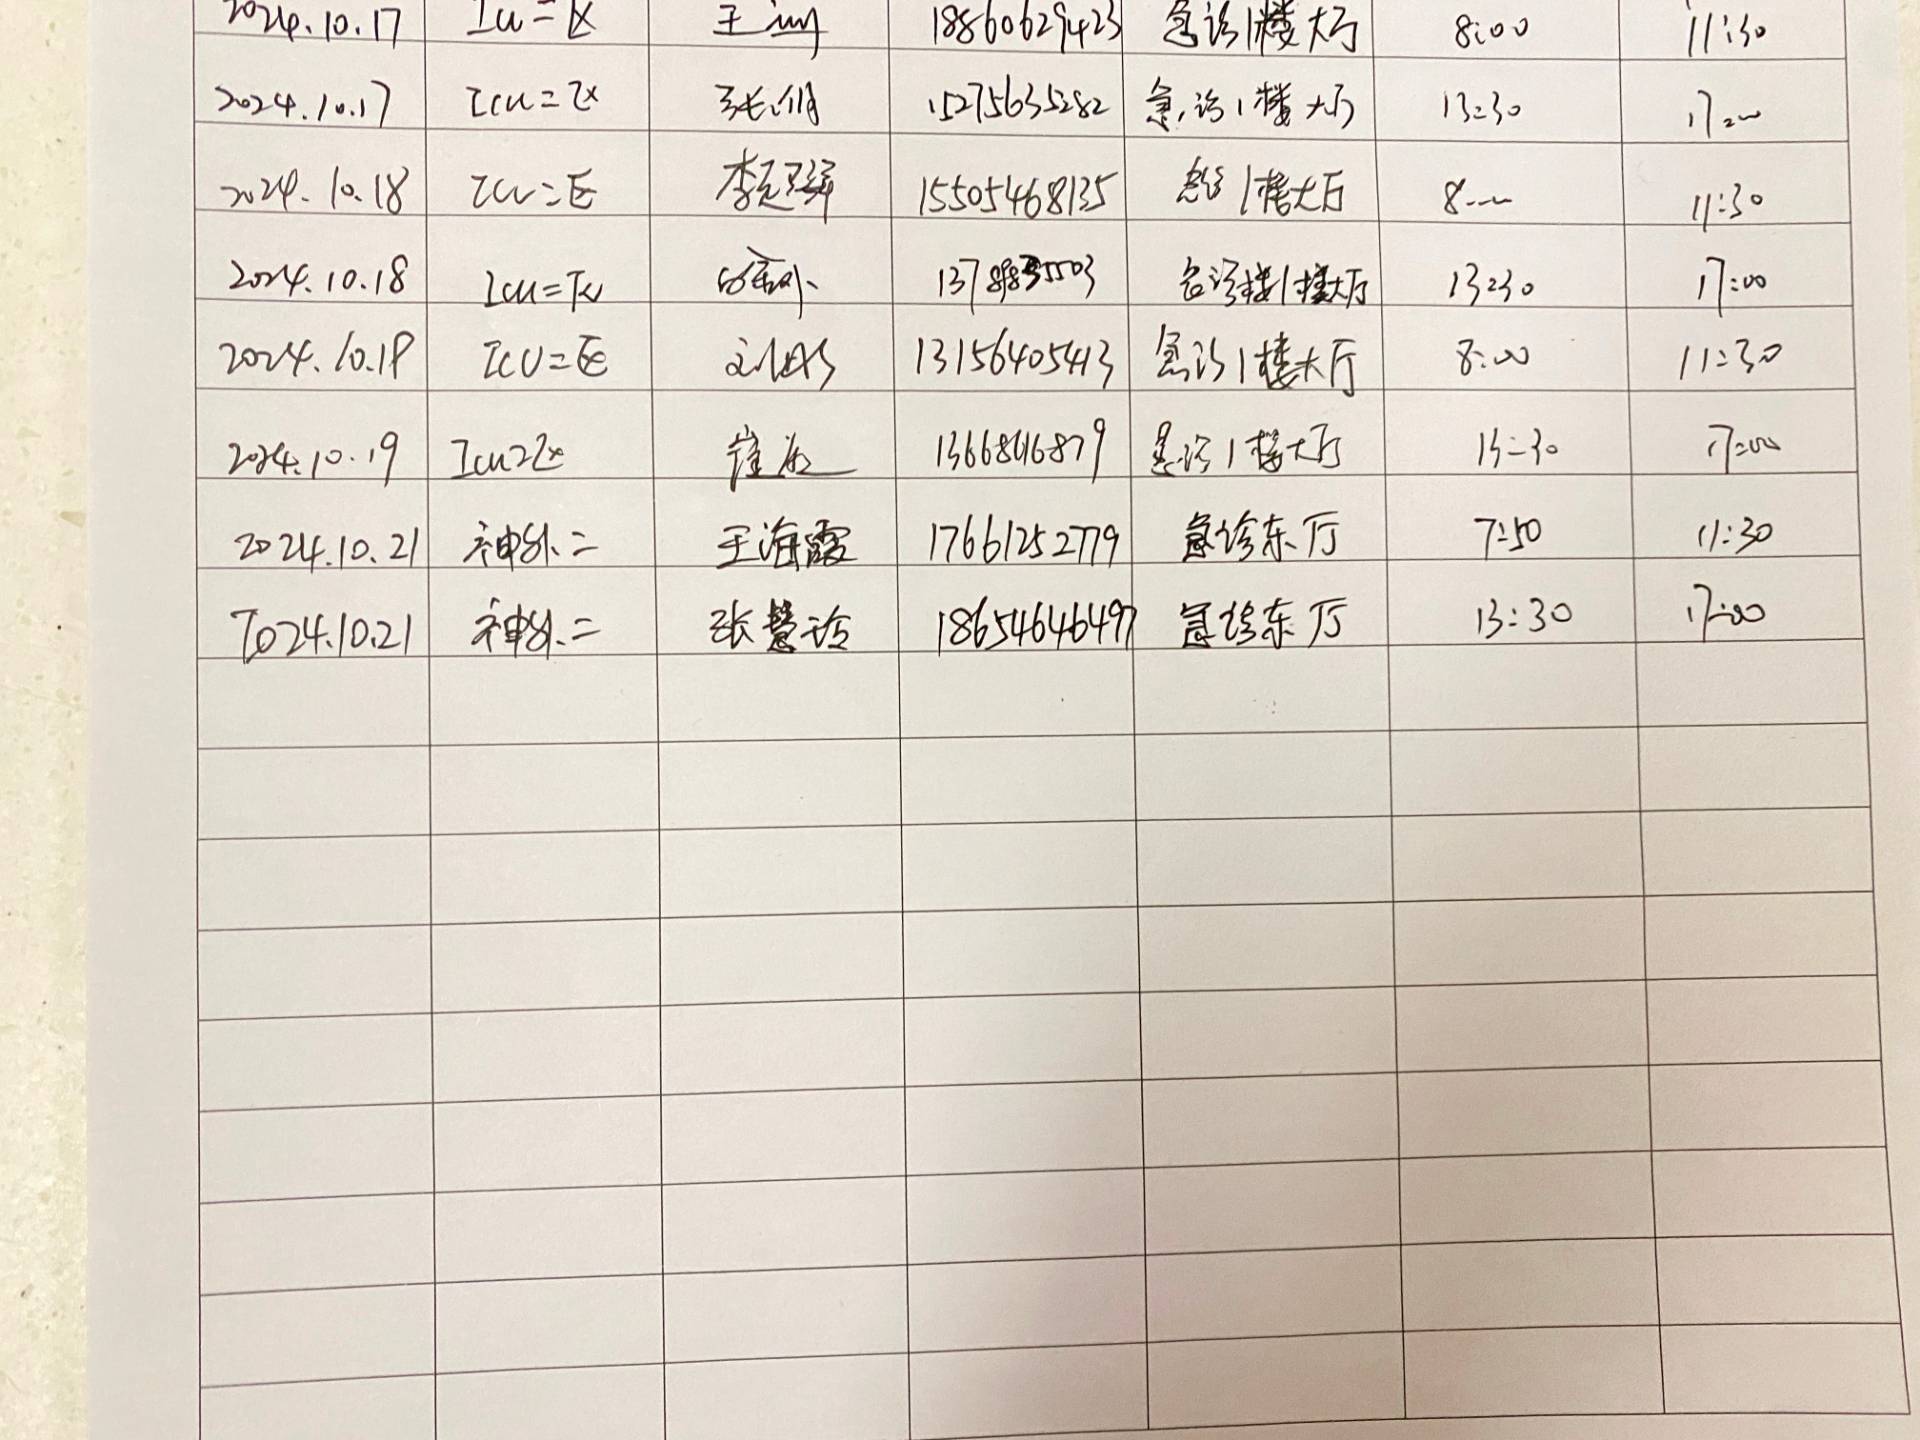 2024.10.17 ICU二区 王 18860629423 急诊1楼大厅 8:00 11:30
2024.10.17 ICU二区 张 15275635282 急诊1楼大厅 13:30 17:00
2024.10.18 ICU二区 李 15505468135 急诊1楼大厅 8:00 11:30
2024.10.18 ICU二区 急诊楼1楼大厅 13:30 17:00
ICU二区 13156405413 急诊1楼大厅 8:00 11:30
2024.10.19 ICU二区 崔 急诊1楼大厅 13:30 17:00
2024.10.21 神外二 王海霞 17661252779 急诊东厅 7:50 11:30
2024.10.21 神外二 张慧玲 18654646497 急诊东厅 13:30 17:00